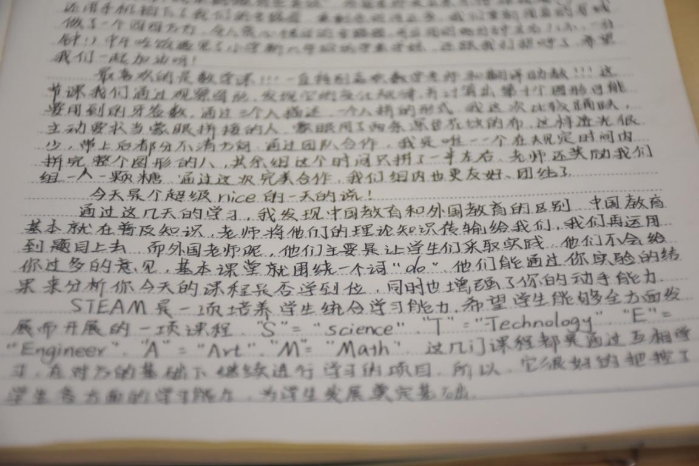 做了一个四面方方
钟!! 中午吃饭遇见了小学期
我们一起加油啊!
最喜欢的是数学课!!! 一直特别喜欢数学老师和翻译助教!!! 这
节课我们通过观察图形, 发现它的变化规律, 并计算出第十个图形可能
要用到的牙签数, 通过一个人描述, 一个人拼的形式, 我这次比较踊跃,
主动要求当蒙眼拼接的人, 蒙眼用了两条黑色花纹的布, 这样透光很
少, 带上后都分不清方向. 通过团队合作, 我是唯一一个在规定时间内
拼完整个图形的人, 其余组这个时间只拼了一半左右, 老师还奖励我们
组一人一颗糖. 通过这次完美合作, 我们组内也更友好、团结了.
今天是个超级nice的一天的说!
通过这几天的学习, 我发现中国教育和外国教育的区别. 中国教育
基本就在普及知识, 老师将他们的理论知识传输给我们, 我们再运用
到题目上去. 而外国老师呢, 他们主要是让学生们采取实践, 他们不会给
你过多的意见, 基本课堂就围绕一个词“do”. 他们能通过你实验的结
果来分析你今天的课程是否学到位, 同时也增强了你的动手能力.
STEAM是一项培养学生综合学习能力, 希望学生能够全方面发
展而开展的一项课程. "S"="science" "T"="Technology" "E"=
"Engineer". "A"="Art". "M"="Math". 这几门课程都是通过互相学
习, 在对方的基础下继续进行学习的项目. 所以, 它很好的把控了
学生各方面的学习能力, 为学生发展奠定基础.